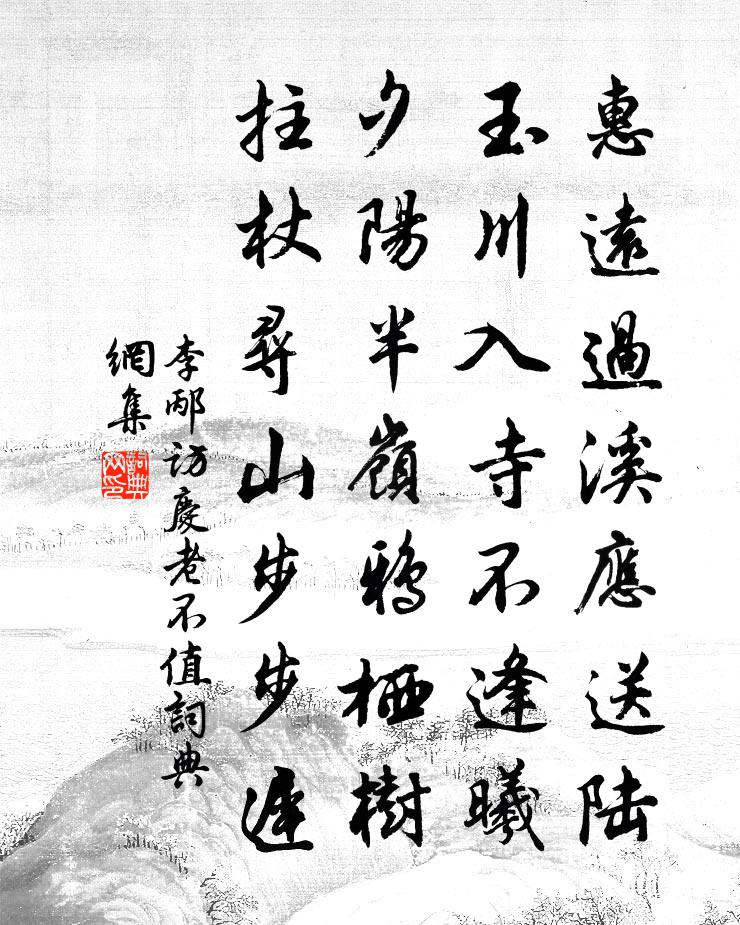 惠遠過溪應送陆
玉川入寺不逢曦
夕陽半嶺鴉栖樹
拄杖尋山步步遲
李邴访慶老不值詞典
網集